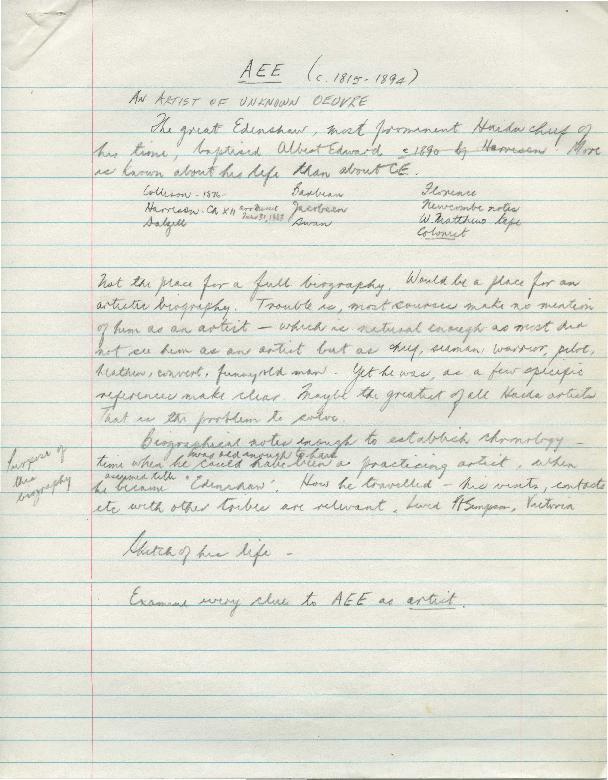 AEE (c. 1815-1894)
AN ARTIST OF UNKNOWN OEUVRE
The great Edenshaw, most prominent Haida chief of
his time, baptised Albert Edward c 1890 by Harrison. More
is known about his life than about CE.
Collison - 1876 Barbeau Florence
Harrison - Ch XII arr Masset 1883 Jacobsen Newcombe notes
Dalzell Swan W. Matthew
Colonist
Not the place for a full biography. Would be a place for an
artistic biography. Trouble is, most sources make no mention
of him as an artist — which is natural enough as most did
not see him as an artist but as chief, seaman, warrior, pilot,
heathen, convert, funny old man. Yet he was, as a few specific
references make clear. Maybe the greatest of all Haida artists
That is the problem to solve.
Purpose of
this
biography
Biographical notes enough to establish chronology —
was old enough to have
time when he could have been a practising artist, when
assumed title
he became "Edenshaw". How he travelled — his visits, contacts
etc with other tribes are relevant. Lived Ft Simpson, Victoria
Sketch of his life -
Examine every clue to AEE as artist.